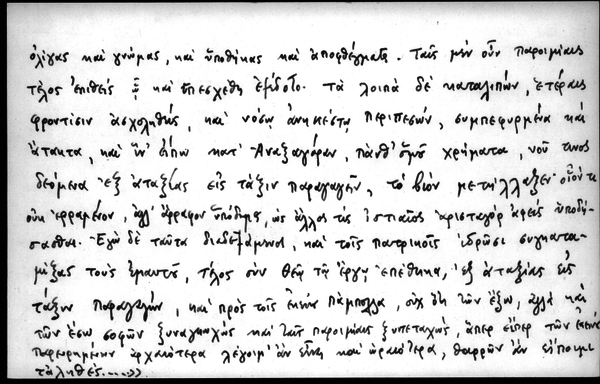 ὀλίγας καὶ γνώμας, καὶ ὑποθήκας καὶ ἀποφθέγματα. Ταῖς μὲν οὖν παροιμίαις
τέλος ἐπιθεὶς ᾗ καὶ ὑπεσχέθη ἐξέδοτο· τὰ λοιπὰ δὲ καταλιπών, ἑτέραις
φροντίσιν ἀσχοληθείς, καὶ νόσῳ ἀνηκέστῳ περιπεσών, συμπεφυρμένα καὶ
ἄτακτα, καὶ ἵν' εἴπω κατ' Ἀναξαγόραν, πάνθ' ὁμοῦ χρήματα, νοῦ τινος
δεόμενα ἐξ ἀταξίας εἰς τάξιν παραγαγεῖν, τὸν βίον μετήλλαξεν οἷόν τι
οὐκ ἐρραμένον, ἀλλ' ἄρραφον ὑπόδημα, ὡς ἄλλος τις Ἱστιαῖος Ἀρισταγόρᾳ ἀφεὶς ὑποδή-
σασθαι. Ἐγὼ δὲ ταῦτα διαδεξάμενος, καὶ τοῖς πατρικοῖς ἱδρῶσι συγκατα-
μίξας τοὺς ἐμαυτοῦ, τέλος σὺν θεῷ τῷ ἔργῳ ἐπέθηκα, ἐξ ἀταξίας εἰς
τάξιν παραγαγών, καὶ πρὸς τοῖς ἐκείνου πάμπολλα, οὐχ ἐκ τῶν ἔξω, ἀλλὰ καὶ
τῶν ἔσω σοφῶν ξυναγηοχὼς καὶ ταῖς παροιμίαις ξυντεταχώς, ἅπερ εἴπερ τῶν ἐκείνῳ
παρειρημένων ἀρχαιότερα λέγοιμ' ἂν εἶναι καὶ ὡραιότερα, θαρρῶν ἂν εἴποιμι
τἀληθές....»